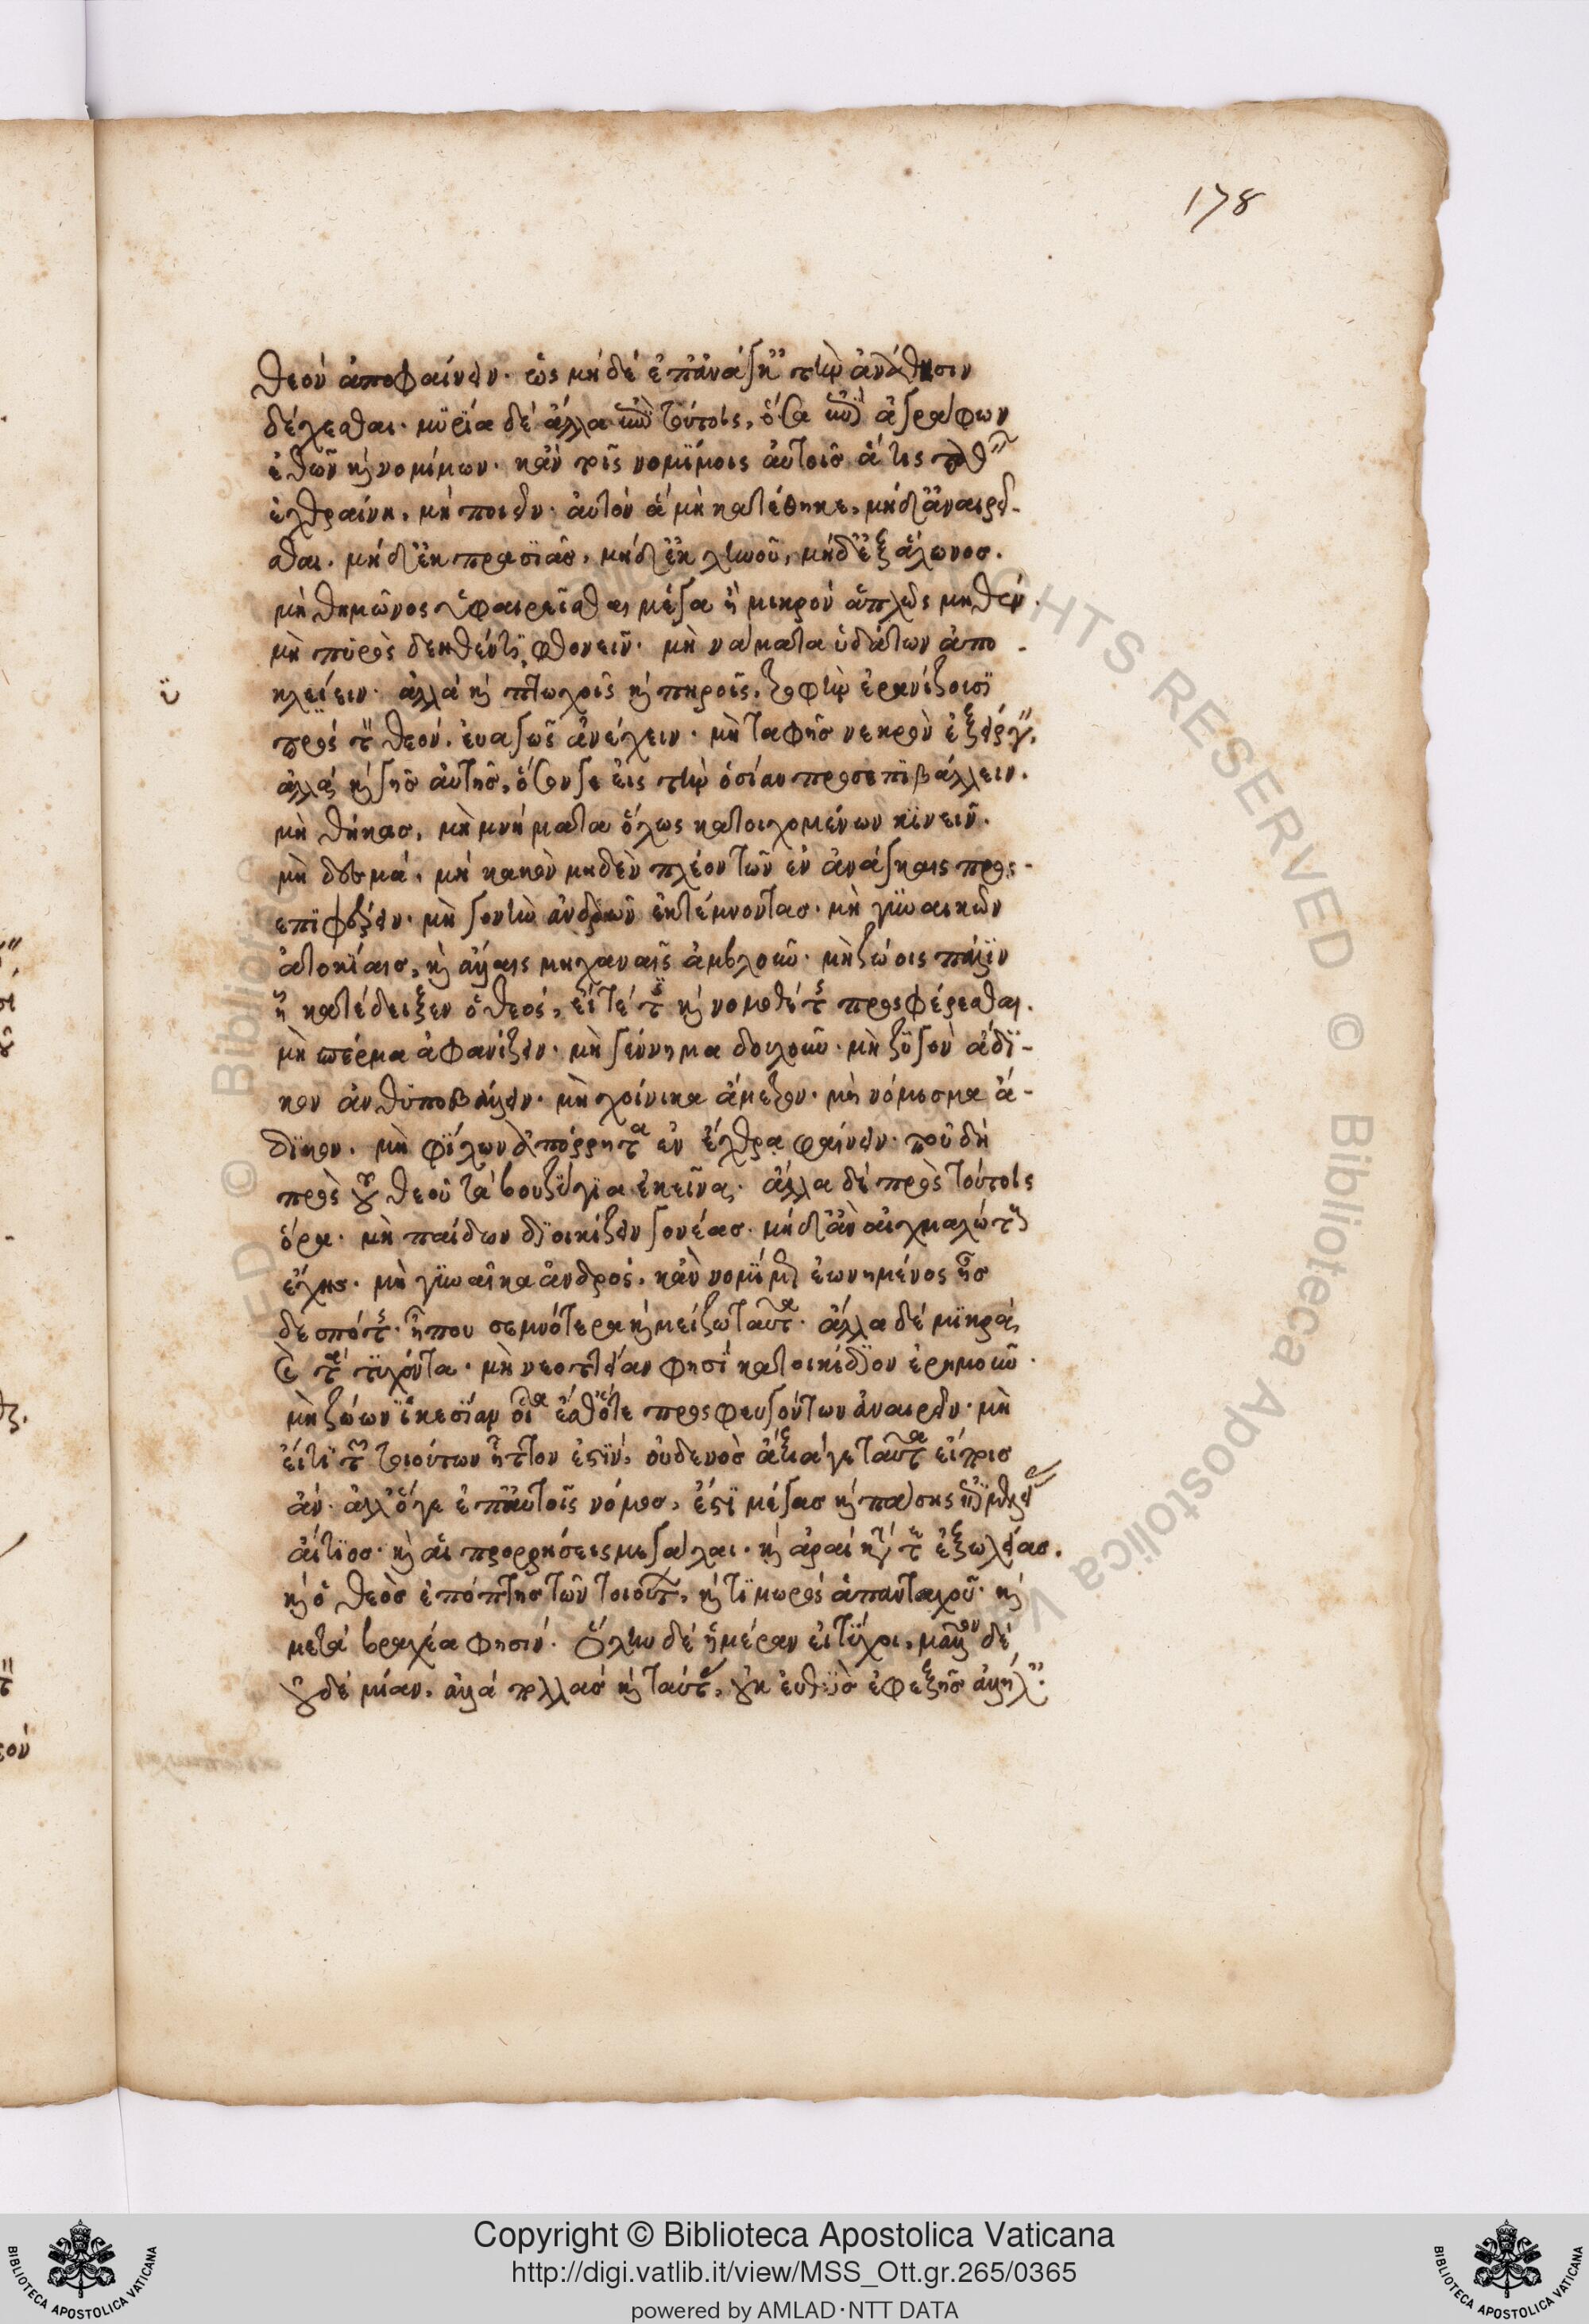 178
θεὸν ἀποφαίνειν. ὡς μηδὲ ἐπανάγκη τὴν ἀνάθεσιν
δέχεσθαι. μυρία δὲ ἄλλα ἐπὶ τούτοις, ὅσα καὶ ἐπὶ ἀγράφων
ἐθῶν καὶ νομίμων. κἀν τοῖς νομίμοις αὐτοῖς ἅ τις παθεῖν
ἐχθραίνη, μὴ ποιεῖν. αὐτὸν ἃ μὴ κατέθηκε, μήδ' ἀναιρεῖ-
σθαι. μήδ' ἐκ πρασιᾶς, μήδ' ἐκ ληνοῦ, μήδ' ἐξ ἅλωνος.
μὴ θημῶνος ὑφαιρεῖσθαι μέγα ἢ μικρὸν ἁπλῶς μηθέν.
μὴ πυρὸς δεηθέντι φθονεῖν. μὴ νάματα ὑδάτων ἀπο-
κλείειν. ἀλλὰ καὶ πτωχοῖς καὶ πηροῖς, τροφὴν ἐρανίζουσι
πρὸς τὸν θεόν. εὐαγῶς ἀνέχειν. μὴ ταφῆς νεκρὸν ἐξείργειν,
ἀλλὰ καὶ γῆς αὐτῆς, ὅσον γε εἰς τὴν ὁσίαν προσεπιβάλλειν.
μὴ θήκας, μὴ μνήματα ὅλως κατοιχομένων κινεῖν.
μὴ δεσμὰ, μὴ κακὸν μηδὲν πλέον τῶν ἐν ἀνάγκαις προσ-
επιφέρειν. μὴ γονὴν ἀνδρῶν ἐκτέμνοντας. μὴ γυναικῶν
ἀτοκίαις, καὶ ἄλλαις μηχαναῖς ἀμβλοῦν. μὴ ζώοις πάλιν
ἢ κατέδειξεν ὁ θεός, εἴτε τις καὶ νομοθέτης προσφέρεσθαι.
μὴ σπέρμα ἀφανίζειν. μὴ γέννημα δουλοῦν. μὴ ζυγὸν ἄδι-
κον ἀνθυποβάλλειν. μὴ χοίνικα ἄμετρον. μὴ νόμισμα ἄ-
δικον. μὴ φίλων ἀπόρρητα ἐν ἔχθρα φαίνειν. ποῦ δὴ
πρὸς τοῦ θεοῦ τὰ βουζύγια ἐκεῖνα, ἄλλα δὲ πρὸς τούτοις
ὅρα. μὴ παίδων διοικίζειν γονέας. μήδ' ἂν αἰχμαλώτους
ἔχης. μὴ γυναῖκα ἀνδρός, κἂν νομίμως ἐωνημένος ἦς
δεσπότης. ἦπου σεμνότερα καὶ μείζω ταῦτα. ἄλλα δὲ μικρὰ,
καὶ τὰ τυχόντα. μὴ νεοττείαν φησὶ κατοικίδιον ἐρημοῦν.
μὴ ζώων ἱκεσίαν οἷα ἔσθ' ὅτε προσφευγόντων ἀναιρεῖν. μὴ
εἴ τι τῶν τοιούτων ἧττον ἐστίν, οὐδενὸς ἄξια γε ταῦτα εἴποις
ἄν. ἀλλ' ὅ γε ἐπ' αὐτοῖς νόμος, ἐστὶ μέγας καὶ πάσης ἐπιμελείας
αἴτιος. καὶ αἱ προρρήσεις μεγάλαι. καὶ ἀραὶ κατά τε ἐξωλείας.
καὶ ὁ θεὸς ἐπόπτης τῶν τοιούτων, καὶ τιμωρὸς ἁπανταχοῦ. καὶ
μετὰ βραχέα φησίν. ὅλην δὲ ἡμέραν εἰ τύχοι, μᾶλλον δὲ
οὐδὲ μίαν, ἀλλὰ πολλὰς καὶ ταύτας, οὐκ εὐθὺς ἐφεξῆς ἀλλήλων.
Copyright © Biblioteca Apostolica Vaticana
http://digi.vatlib.it/view/MSS_Ott.gr.265/0365
powered by AMLAD·NTT DATA